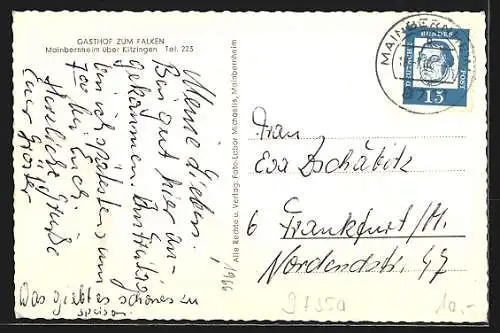 GASTHOF ZUM FALKEN
Mainbernheim über Kitzingen Tel. 225
Meine Lieben!
Bin gut hier an-
gekommen.
bin ich spätestens um
700 bei Euch
Herzliche Grüße
Euer
Was giebt es schönes zu
speisen.
Alle Rechte u. Verlag: Foto-Labor Michaelis, Mainbernheim
1966
MAINBERNHEIM
DEUTSCHE BUNDESPOST
15
Frau
Eva Zschäbitz
6 Frankfurt/M.
Nordendstr. 47
97350
10,-